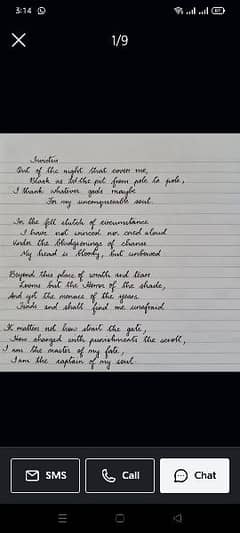 3:14
1/9
Invictus
Out of the night that cover me,
Black as the pit from pole to pole,
I thank whatever gods maybe
For my unconquerable soul.
In the fell clutch of circumstance
I have not winced nor cried aloud
Under the bludgeonings of chance
My head is bloody, but unbowed
Beyond this place of wrath and tears
Looms but the Horror of the shade,
And yet the menace of the years
Finds and shall find me unafraid
It matters not how strait the gate,
How charged with punishments the scroll,
I am the master of my fate,
I am the captain of my soul
SMS
Call
Chat